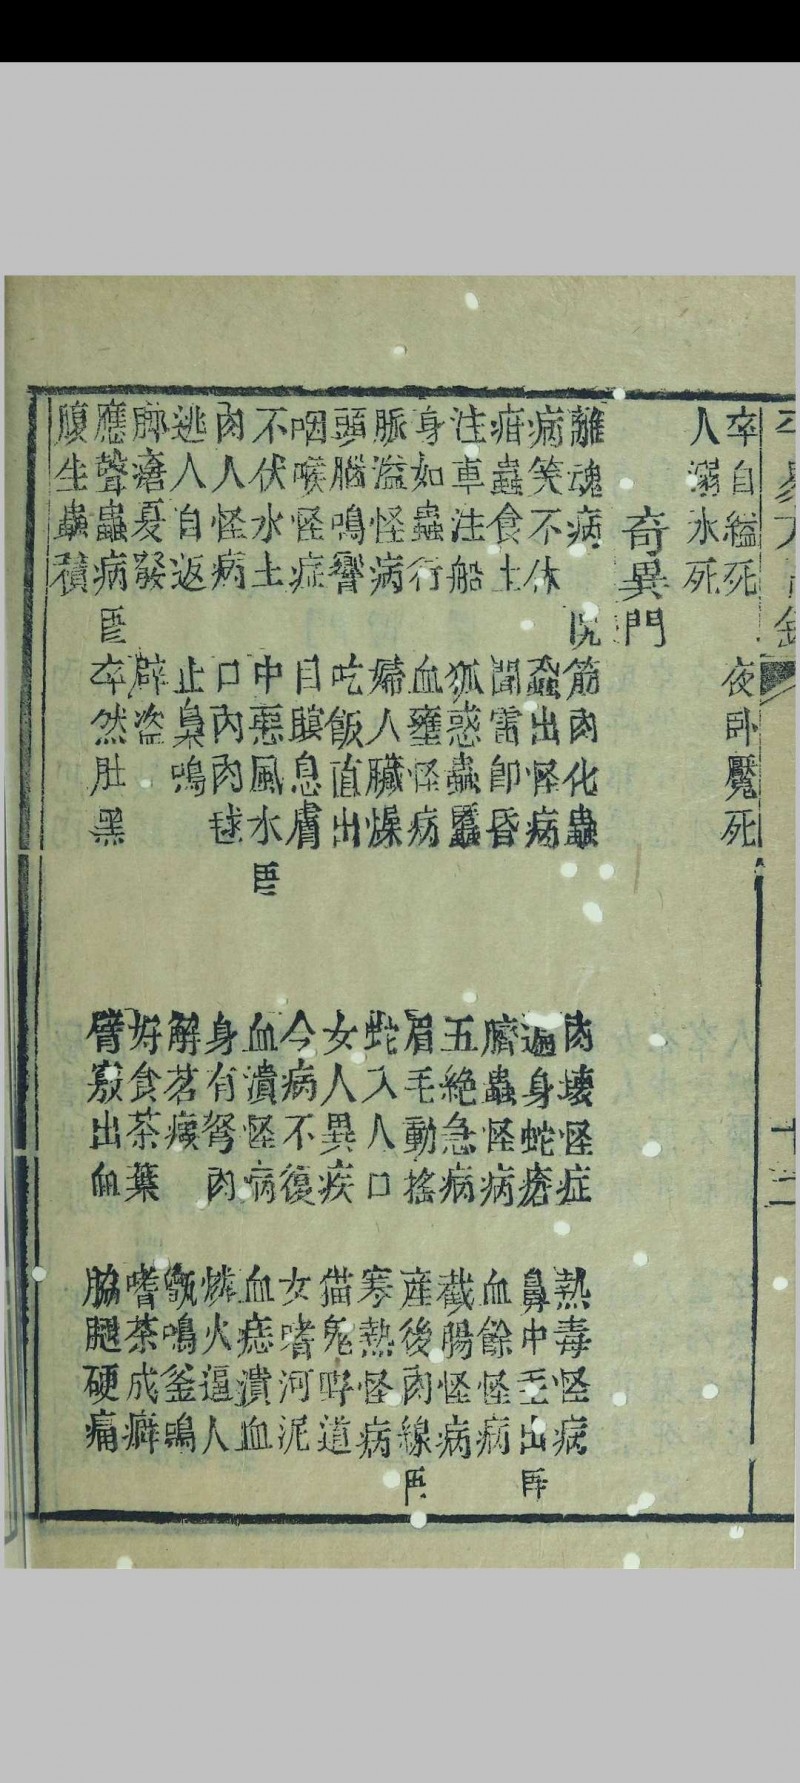 十二
卒自縊死 夜卧魘死
人溺水死
奇異門
離魂病 筋肉化蟲 肉壊怪症 熱毒怪病
病笑不休 出怪病 遍身蛇瘡 鼻中毛出
疳蟲食土 聞雷即昏 臍蟲怪病 血餘怪病
注車注船 狐惑蟲䘌 五絶急病 截腸怪病
身如蟲行 血壅怪病 眉毛動搖 産後肉線
脈溢怪病 婦人臟燥 蛇入人口 寒熱怪病
頭腦鳴響 吃飯直出 女人異疾 猫鬼野道
咽喉怪症 目息膚 今病不復 女嗜河泥
不伏水土 中惡風水 血潰怪病 血痣潰血
肉人怪病 口內肉毬 身有弩肉 燐火逼人
逃人自返 止梟鳴 解茗瘕 甑鳴釜鳴
瘡夏發 辟盗 好食茶葉 嗜茶成癖
應聲蟲病 卒然肚黑 臂竅出血 脇腿硬痛
腹生蟲積